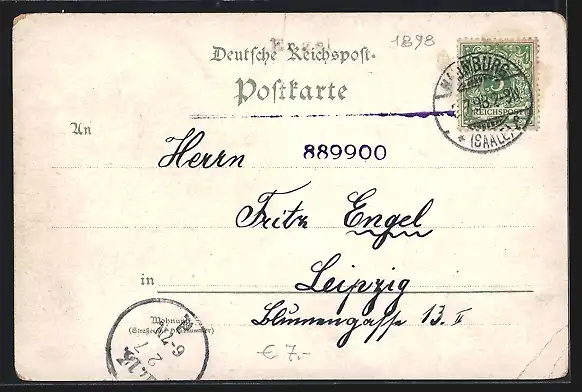 1898
Engel
Deutsche Reichspost.
Postkarte
NAUMBURG
7.98.
(SAALE)
5
REICHSPOST
An
Herrn
889900
Fritz Engel
in Leipzig
Wohnung
(Straße und Hausnummer)
Blumengasse 13. II
2 7
€ 7.-